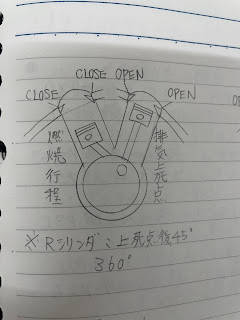 CLOSE OPEN
CLOSE
OPEN
燃焼行程
排気上死点
※Rシリンダ:上死点後45°
360°